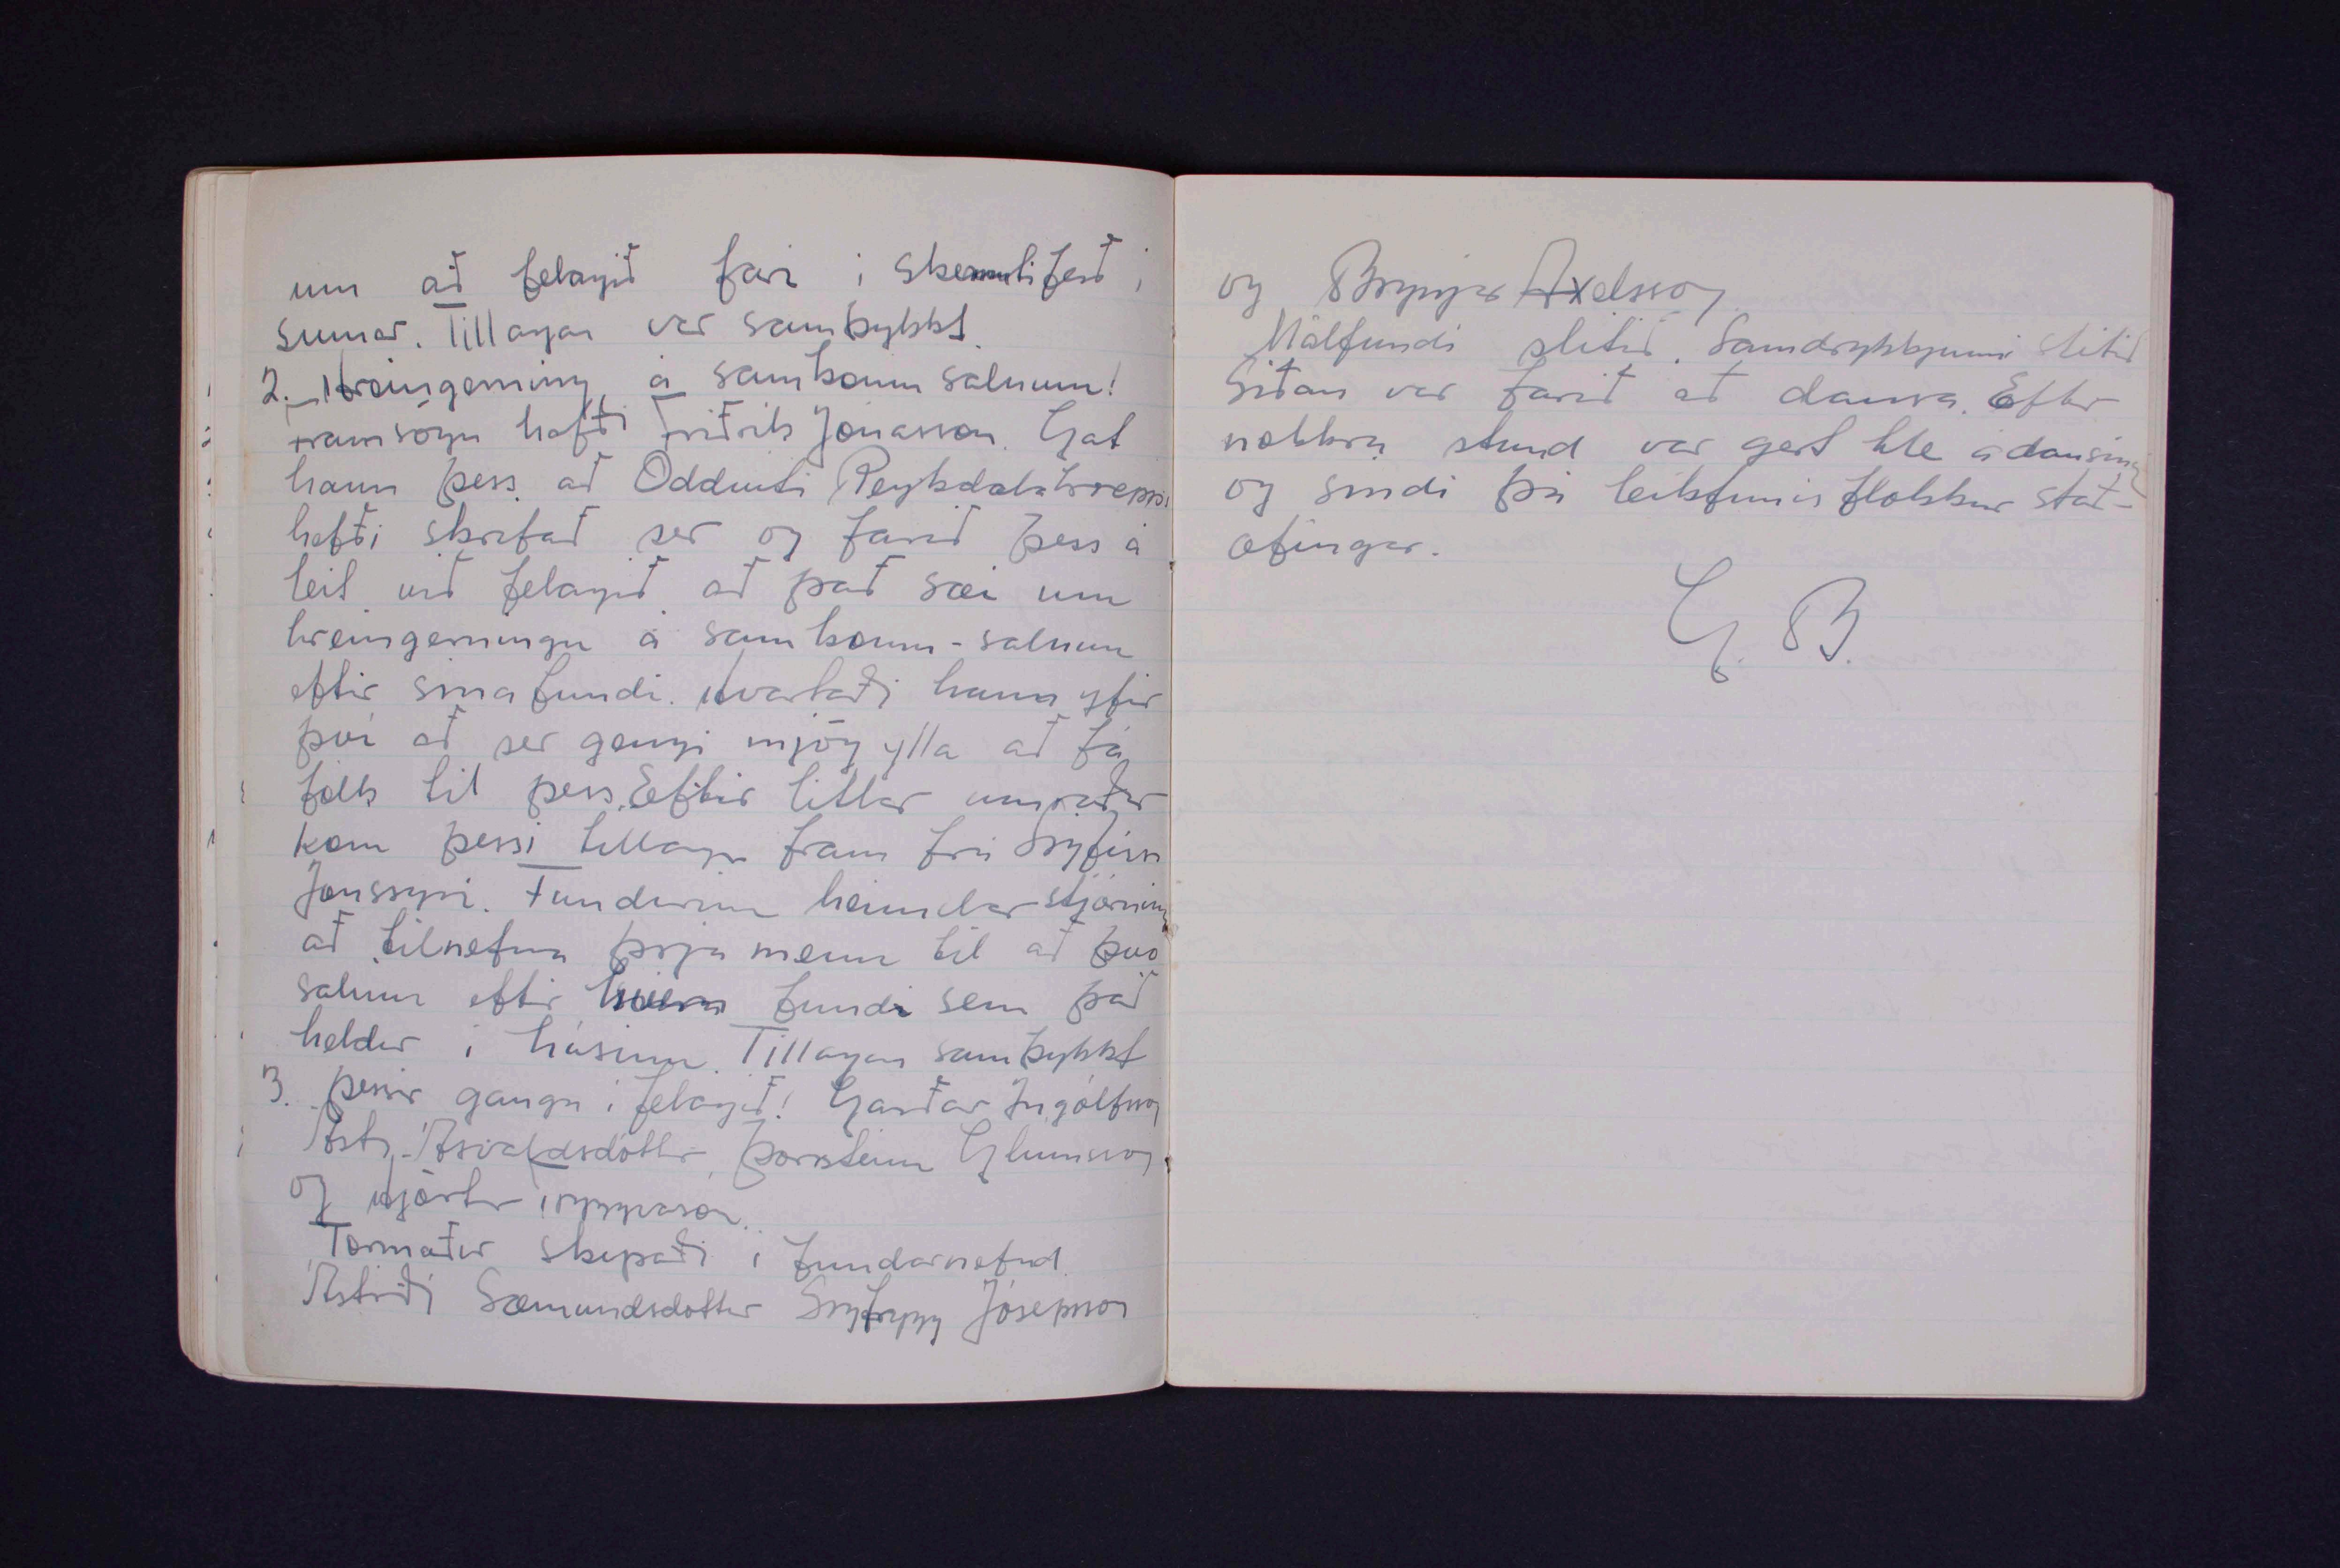 um að felagið fari i skemtiferð i
sumar. Tillagan var samþykkt.
2. Hreingerning á samkomu salnum!
Framsögu hafði Friðrik Jónasson. Gat
hann þess að Oddviti Reykdælahreppi
hefði skrifað ser og farið þess á
leit við felagið að það sæi um
hreingerningu á samkomu-salnum
eftir sina fundi. Kvartaði hann yfir
þvi að ser gengi mjög ylla að fá
fólk til þess. Eftir litlar umræður
kom þessi tillaga fram frá Sigfúsi
Jonssyni. Fundurinn heimilar stjórninni
að tilnefna þrja menn til að þvo
salinn eftir hvern fundi sem það
heldur i húsinu. Tillagan samþykkt
3. Þessir gangu i felagið! Garðar Ingólfsson
Asta Asvaldsdóttir, Þorsteinn Glumsson
og Hjörtur Tryggvason.
Formaður skipaði i fundarnefnd.
Astriði Sæmundsdottur Sigtrygg Jósepsson
og Brynjar Axelsson
Málfundi slitið. Samdrykkjunni slitið
Siðan var farið að dansa. Eftir
nokkra stund var gert hle á dansinum
og sindi þá leikfimis flokkur stað-
æfingar.
G. B.